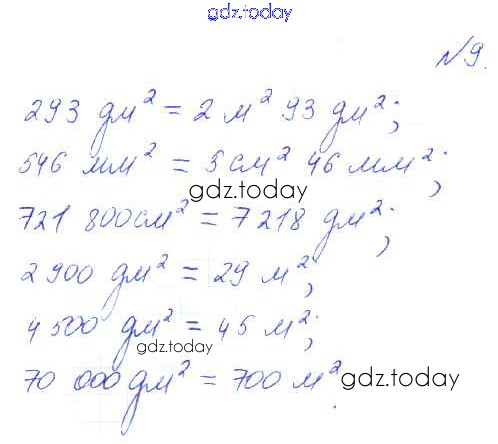 gdz.today
№9.
293 дм² = 2 м² 93 дм²;
546 мм² = 5 см² 46 мм²;
gdz.today
721 800 см² = 7218 дм²;
2 900 дм² = 29 м²;
4 500 дм² = 45 м²;
gdz.today
70 000 дм² = 700 м².
gdz.today